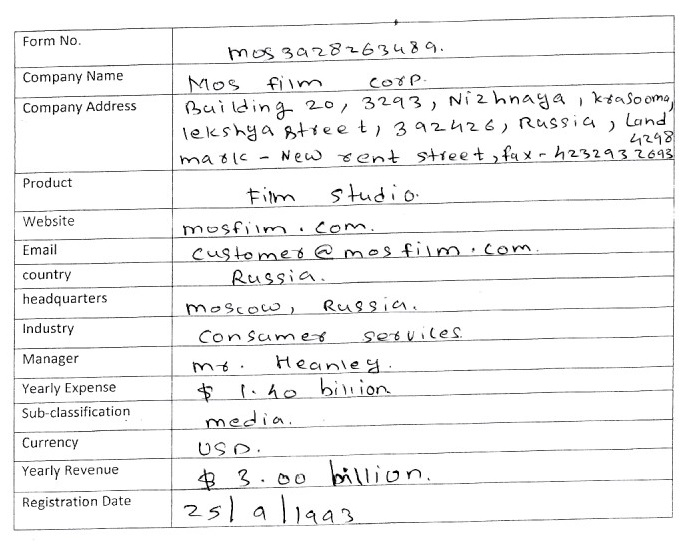 Form No. mos3928263489.
Company Name Mos film corp.
Company Address Building 20, 3293, Nizhnaya, krasooma,
lekshya street, 392426, Russia, Land
mark - New rent street, fax - 4232932693
4298
Product Film studio.
Website mosfilm.com.
Email customer@mosfilm.com.
country Russia.
headquarters moscow, Russia.
Industry consumer services
Manager mr. Heanley.
Yearly Expense $ 1.40 billion
Sub-classification media.
Currency USD.
Yearly Revenue $ 3.00 billion.
Registration Date 25/9/1993